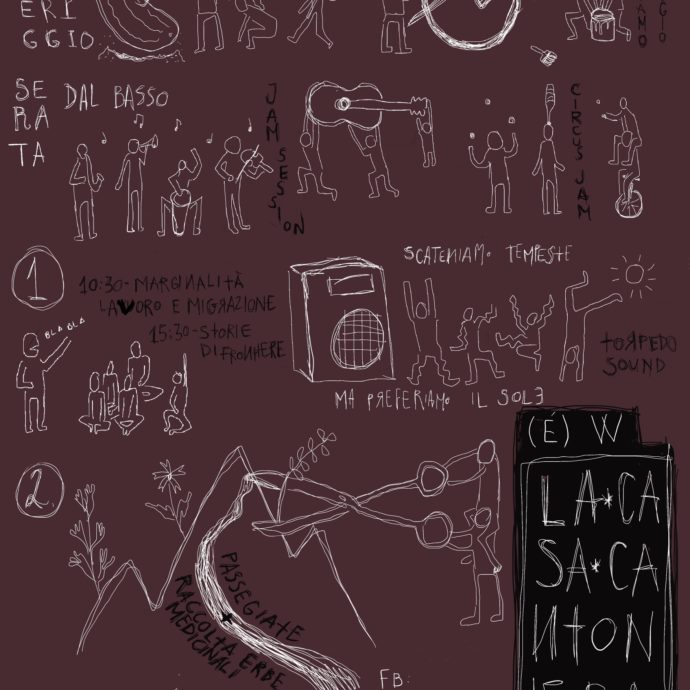 ERI
GGIO
AMO
GIO
SE
RA
TA
DAL BASSO
JAM SESSION
CIRCUS JAM
1
10:30-MARGINALITÀ
LAVORO E MIGRAZIONE
15:30-STORIE
DI FRONTIERE
BLA BLA
SCATENIAMO TEMPESTE
TORPEDO
SOUND
MA PREFERIAMO IL SOLE
2.
PASSEGIATE
RACCOLTA ERBE
MEDICINALI
(É) W
LA*CA
SA*CA
NTON
FB: